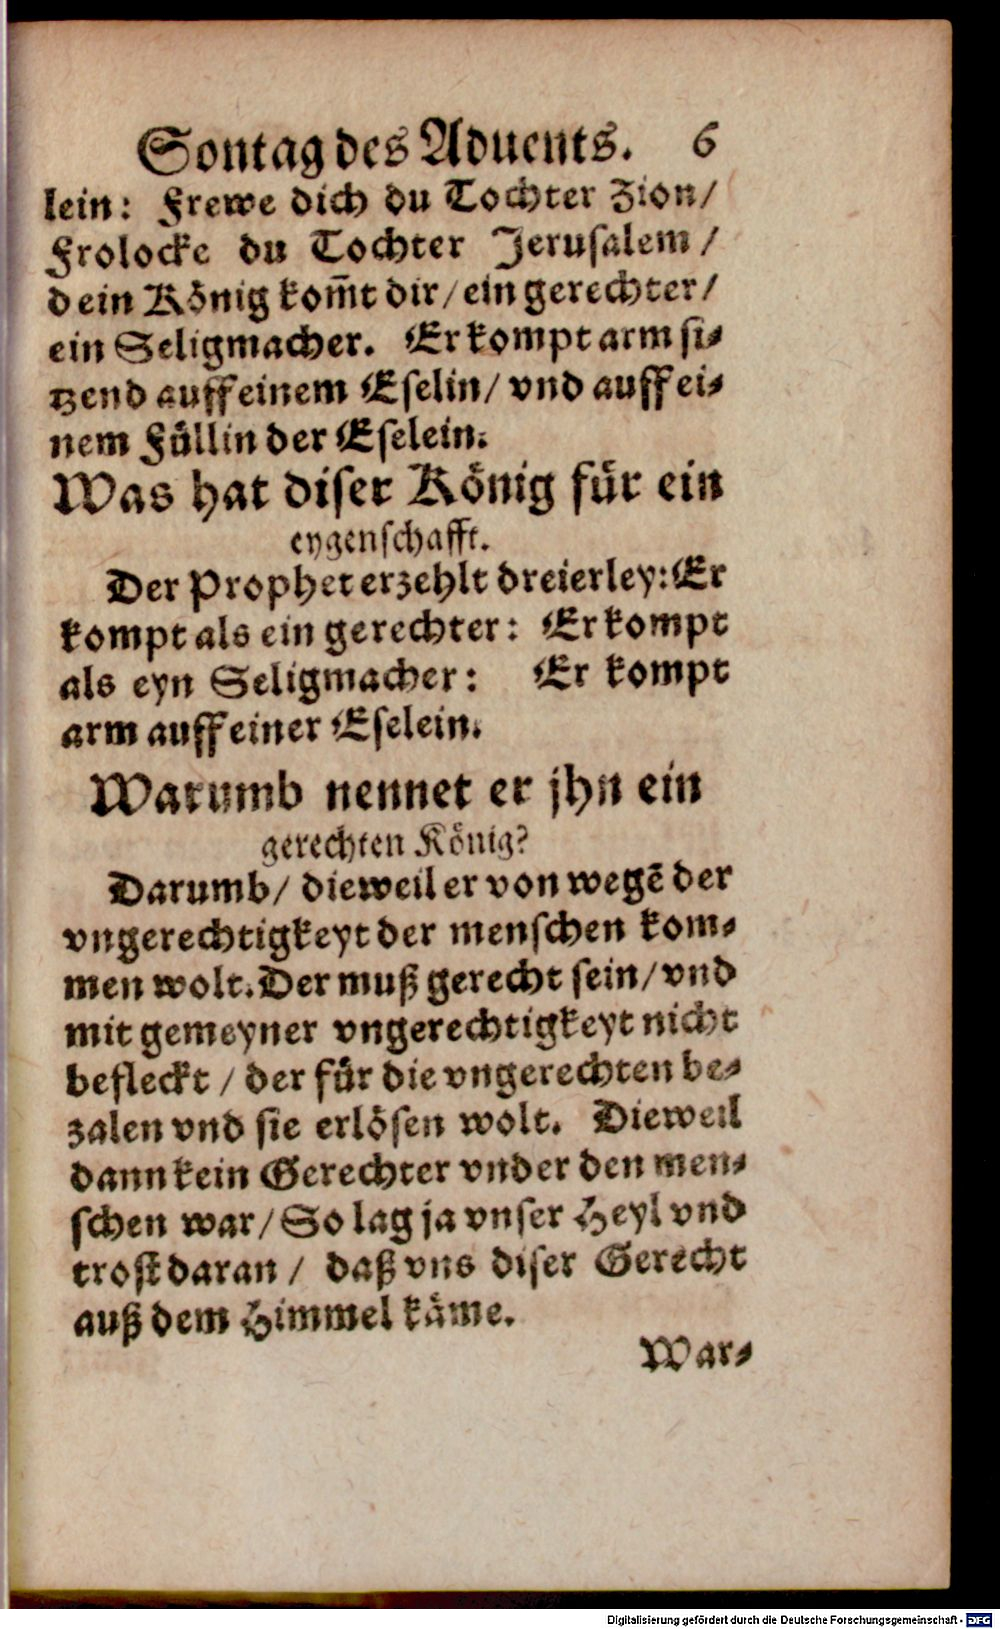 Sontag des Aduents. 6
lein: Frewe dich du Tochter Zion/
Frolocke du Tochter Jerusalem/
dein König kom̃t dir/ ein gerechter/
ein Seligmacher. Er kompt arm si-
tzend auff einem Eselin/ vnd auff ei-
nem Füllin der Eselein.
Was hat diser König für ein
eygenschafft.
Der Prophet erzehlt dreierley: Er
kompt als ein gerechter: Er kompt
als eyn Seligmacher: Er kompt
arm auff einer Eselein.
Warumb nennet er jhn ein
gerechten König?
Darumb/ dieweil er von wegẽ der
vngerechtigkeyt der menschen kom-
men wolt. Der muß gerecht sein/ vnd
mit gemeyner vngerechtigkeyt nicht
befleckt/ der für die vngerechten be-
zalen vnd sie erlösen wolt. Dieweil
dann kein Gerechter vnder den men-
schen war/ So lag ja vnser Heyl vnd
trost daran/ daß vns diser Gerecht
auß dem Himmel käme.
War-
Digitalisierung gefördert durch die Deutsche Forschungsgemeinschaft - DFG